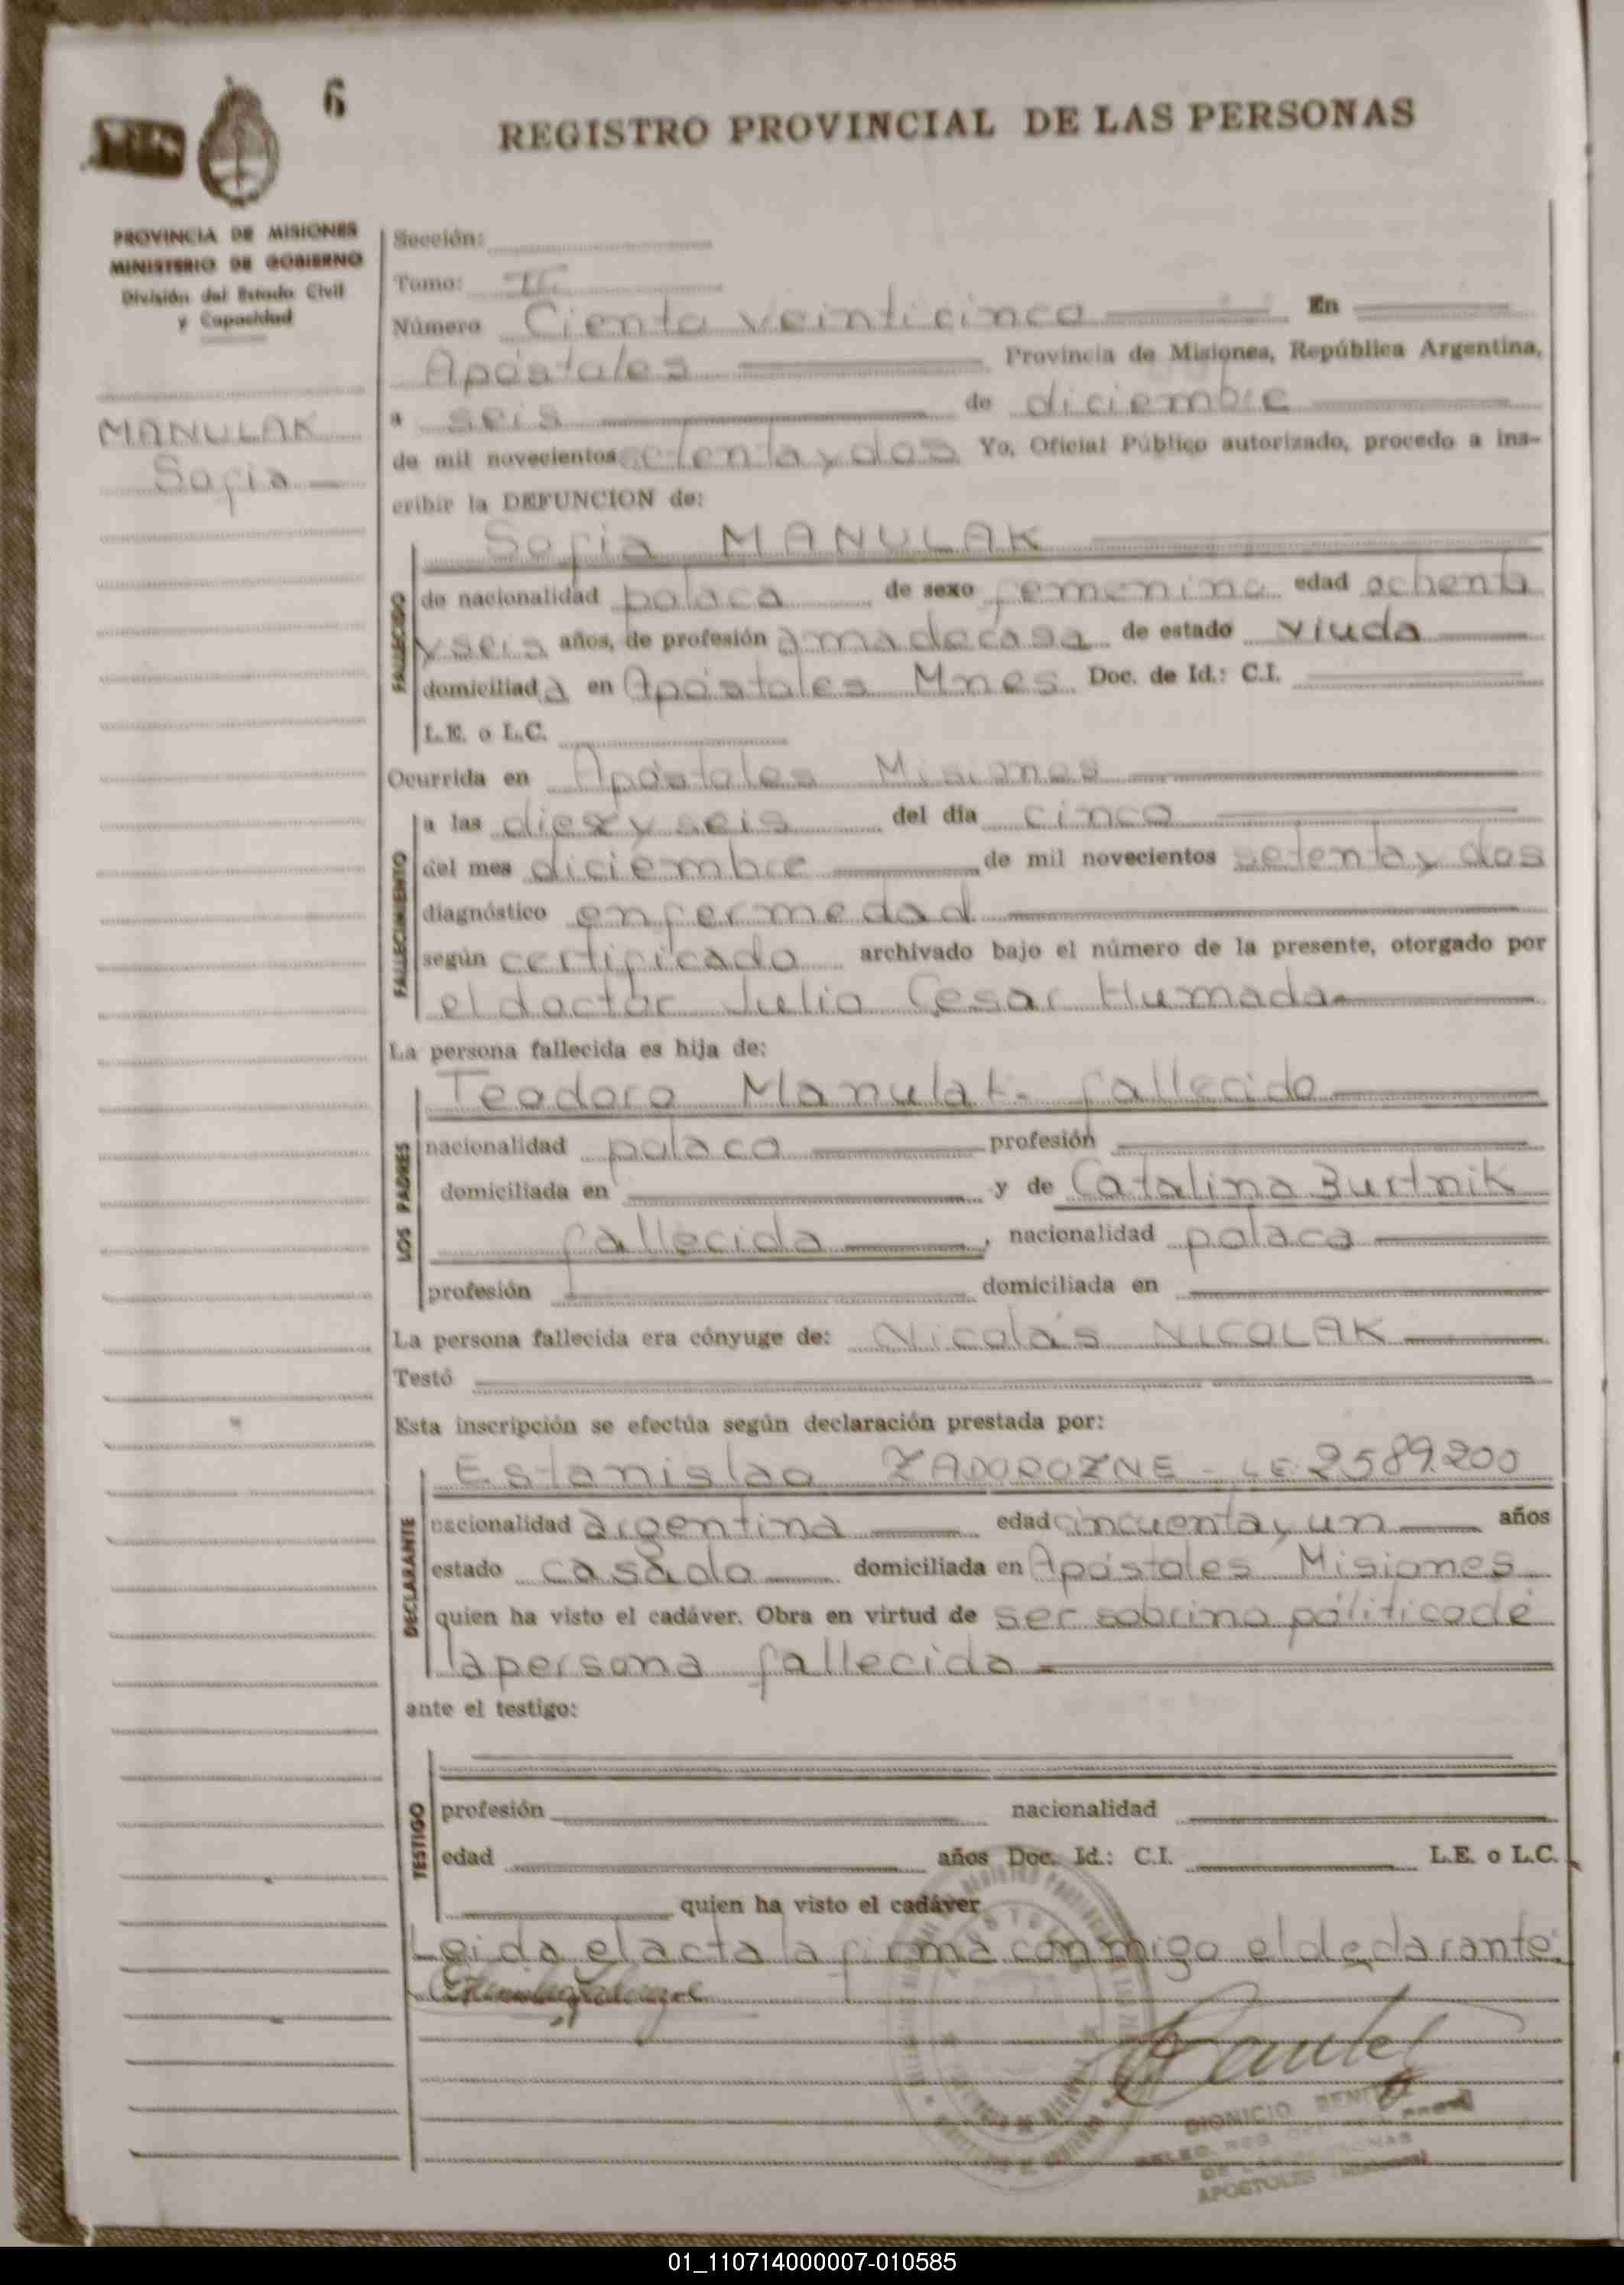 6
REGISTRO PROVINCIAL DE LAS PERSONAS
PROVINCIA DE MISIONES
MINISTERIO DE GOBIERNO
División del Estado Civil
y Capacidad
MANULAK
Sofia
Sección:
Tomo: II
Número Ciento veinticinco En
Apóstoles Provincia de Misiones, República Argentina,
a seis de diciembre
de mil novecientos setenta y dos Yo, Oficial Público autorizado, procedo a ins-
cribir la DEFUNCION de:
Sofia MANULAK
FALLECIDO
de nacionalidad polaca de sexo femenino edad ochenta
y seis años, de profesión ama de casa de estado viuda
domiciliada en Apóstoles Mnes Doc. de Id.: C.I.
L.E. o L.C.
Ocurrida en Apóstoles Misiones
FALLECIMIENTO
a las diez y seis del día cinco
del mes diciembre de mil novecientos setenta y dos
diagnóstico enfermedad
según certificado archivado bajo el número de la presente, otorgado por
el doctor Julio Cesar Humada
La persona fallecida es hija de:
LOS PADRES
Teodoro Manulak - fallecido
nacionalidad polaco profesión
domiciliada en y de Catalina Burtnik
fallecida, nacionalidad polaca
profesión domiciliada en
La persona fallecida era cónyuge de: Nicolás NICOLAK
Testó
Esta inscripción se efectúa según declaración prestada por:
DECLARANTE
Estanislao ZADOROZNE - LE 2589.200
nacionalidad argentina edad cincuenta y un años
estado casado domiciliada en Apóstoles Misiones
quien ha visto el cadáver. Obra en virtud de ser sobrino político de
la persona fallecida
ante el testigo:
TESTIGO
profesión nacionalidad
edad años Doc. Id.: C.I. L.E. o L.C.
quien ha visto el cadáver
Leida el acta la firma conmigo el declarante.
DIONICIO BENITEZ
APOSTOLES
01_110714000007-010585